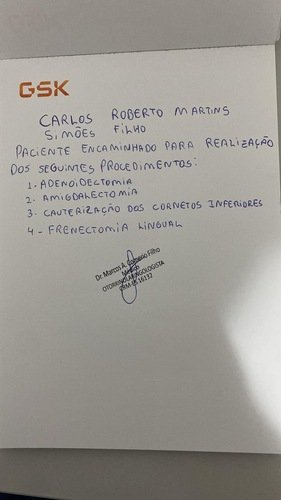 GSK
CARLOS ROBERTO MARTINS
SIMÕES FILHO
PACIENTE ENCAMINHADO PARA REALIZAÇÃO
DOS SEGUINTES PROCEDIMENTOS:
1. ADENOIDECTOMIA
2. AMIGDALECTOMIA
3. CAUTERIZAÇÃO DOS CORNETOS INFERIORES
4 - FRENECTOMIA LINGUAL
Dr. Marcos A. Filho
MÉDICO
OTORRINOLARINGOLOGISTA
16132